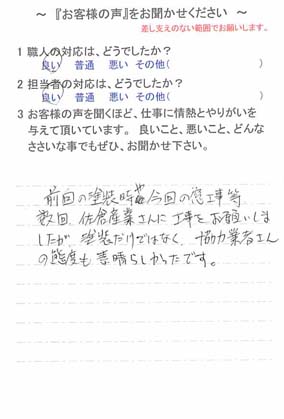 ～『お客様の声』をお聞かせください～
差し支えのない範囲でお願いします。
1 職人の対応は、どうでしたか?
良い 普通 悪い その他( )
2 担当者の対応は、どうでしたか?
良い 普通 悪い その他( )
3 お客様の声を聞くほど、仕事に情熱とやりがいを
与えて頂いています。良いこと、悪いこと、どんな
ささいな事でもぜひ、お聞かせ下さい。
前回の塗装時や今回の窓工事等
数回、佐倉産業さんに工事をお願いしま
したが、塗装だけではなく、協力業者さん
の態度も素晴らしかったです。